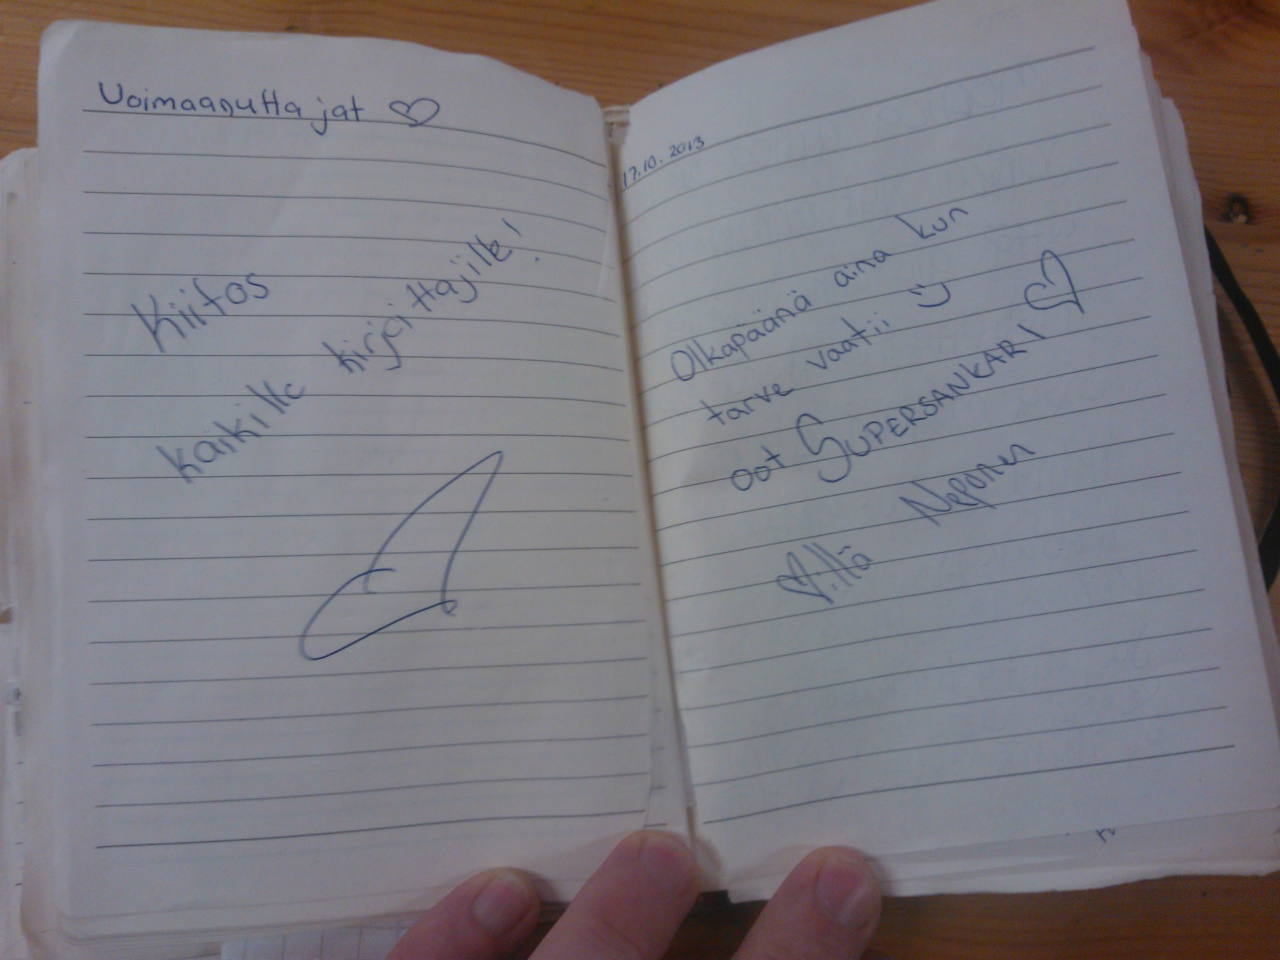 Voimaanuttajat
Kiitos
kaikille kirjoittajille!
17.10.2013
Olkapäänä aina kun
tarve vaatii
oot SUPERSANKARI